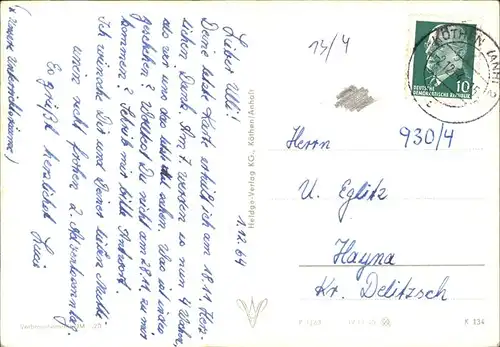 1.12.64
Lieber Ulli!
Deine letzte Karte erhielt ich am 18.11. Herz-
lichen Dank. Am 7. werden es nun 4 Wochen,
das wir uns das letzte Mal sahen. Was ist inden
geschehen? Wolltest Du nicht am 28.11. zu mir
kommen? Schreib mir bitte Antwort.
Ich wünsche Dir und Deiner lieben Mutti
einen recht frohen 2. Adventssonntag.
Es grüßt herzlichst
(unsere Unterrichtsräume)
Heldge-Verlag KG., Köthen/Anhalt
13/4
KÖTHEN (ANH)
DEUTSCHE
DEMOKRATISCHE REPUBLIK
10
Herrn 930/4
U. Eglitz
Hayna
Kr. Delitzsch
K 134